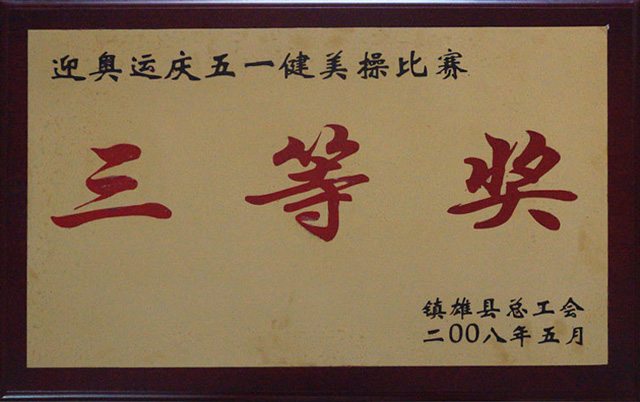 迎奥运庆五一健美操比赛
三等奖
镇雄县总工会
二00八年五月